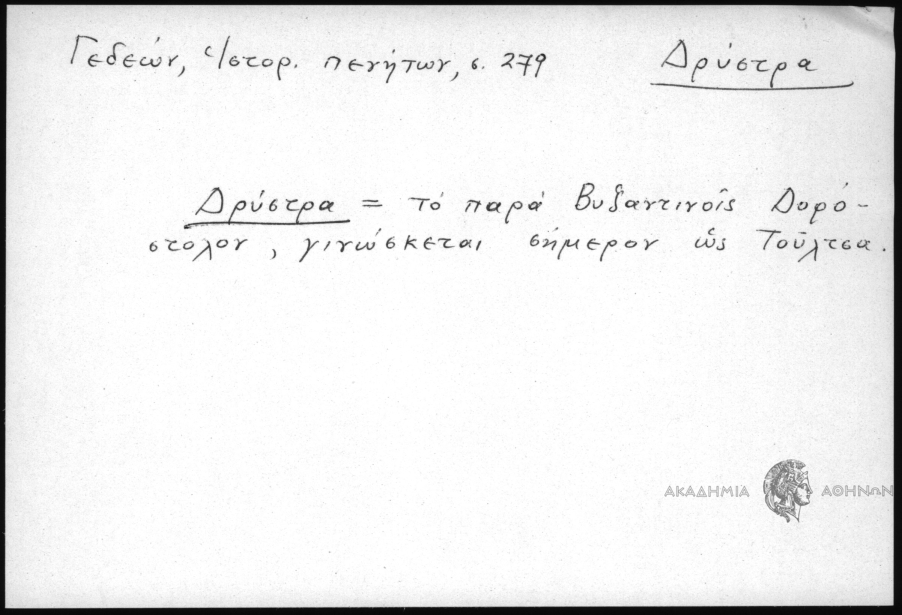 Γεδεών, Ἱστορ. πενήτων, σ. 279 Δρύστρα
Δρύστρα = τό παρά Βυζαντινοῖς Δορό-
στολον, γινώσκεται σήμερον ὡς Τοῦλτσα.
ΑΚΑΔΗΜΙΑ ΑΘΗΝΩΝ